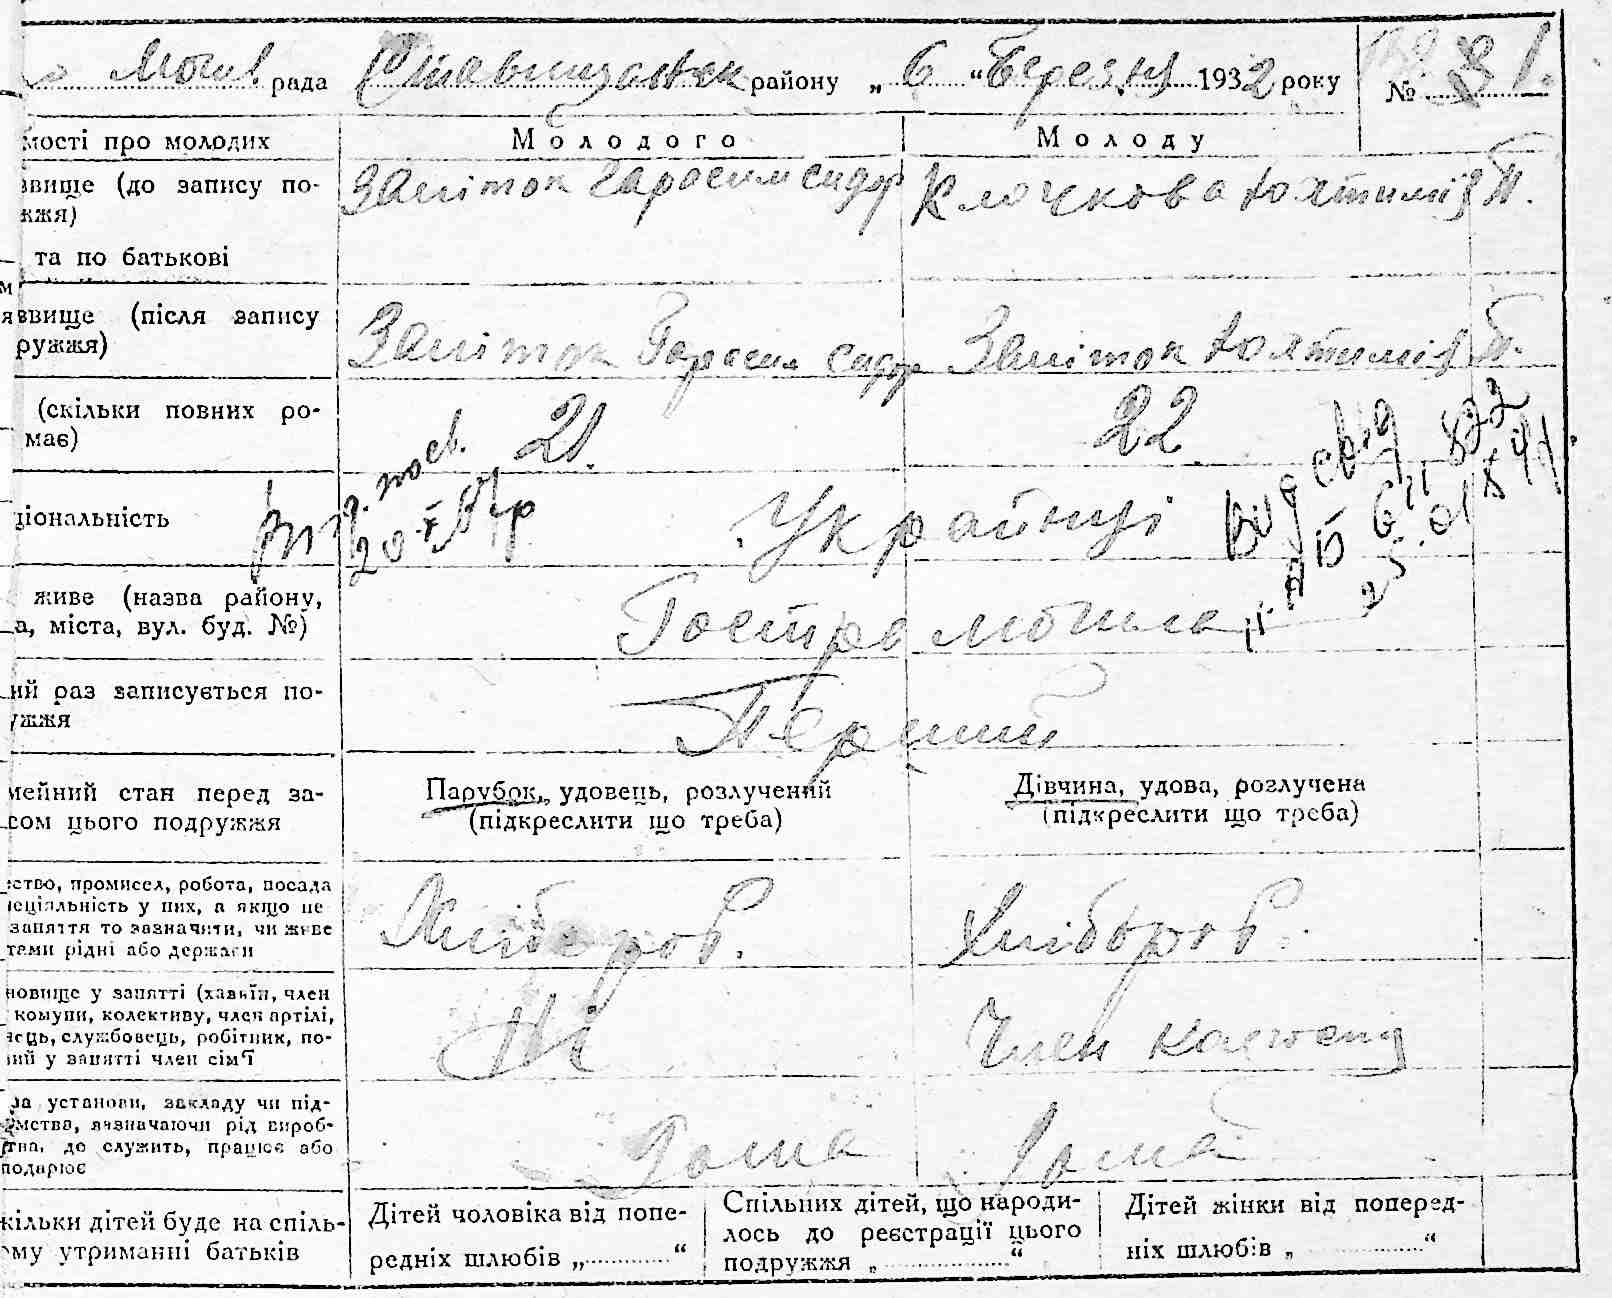 Могил. рада Ставищанськ району „ 6 “ Березня 1932 року № 31.
мості про молодих Молодого Молоду
звище (до запису по-
жжя)
Запіток Гарасим Сидор Клочкова Юхтимія П.
та по батькові
м
яввище (після запису
ружжя)
Запіток Гарасим Сидор Запіток Юхтимія П.
(скільки повних ро-
має)
21. 22
ціональність Українці
пос. 20
Вид свід
живе (назва району,
а, міста, вул. буд. №)
Гостра Могила
ий раз записується по-
ужжя
Перший
мейний стан перед за-
сом цього подружжя
Парубок, удовець, розлучений
(підкреслити що треба)
Дівчина, удова, розлучена
(підкреслити що треба)
ство, промисел, робота, посада
еціяльність у них, а якщо не
заняття то зазначити, чи живе
тами рідні або держави
Хлібороб. Хлібороб.
новище у занятті (хазяїн, член
комуни, колективу, член артілі,
яєць, службовець, робітник, по-
ний у занятті член сім'ї
Ні Член колгоспу
ва установи, закладу чи під-
ємства, зазначаючи рід вироб-
тва, де служить, працює або
подарює
Дома Дома
кільки дітей буде на спіль-
ому утриманні батьків
Дітей чоловіка від попе-
редніх шлюбів „ “
Спільних дітей, що народи-
лось до реєстрації цього
подружжя „ “
Дітей жінки від поперед-
ніх шлюбів „ “